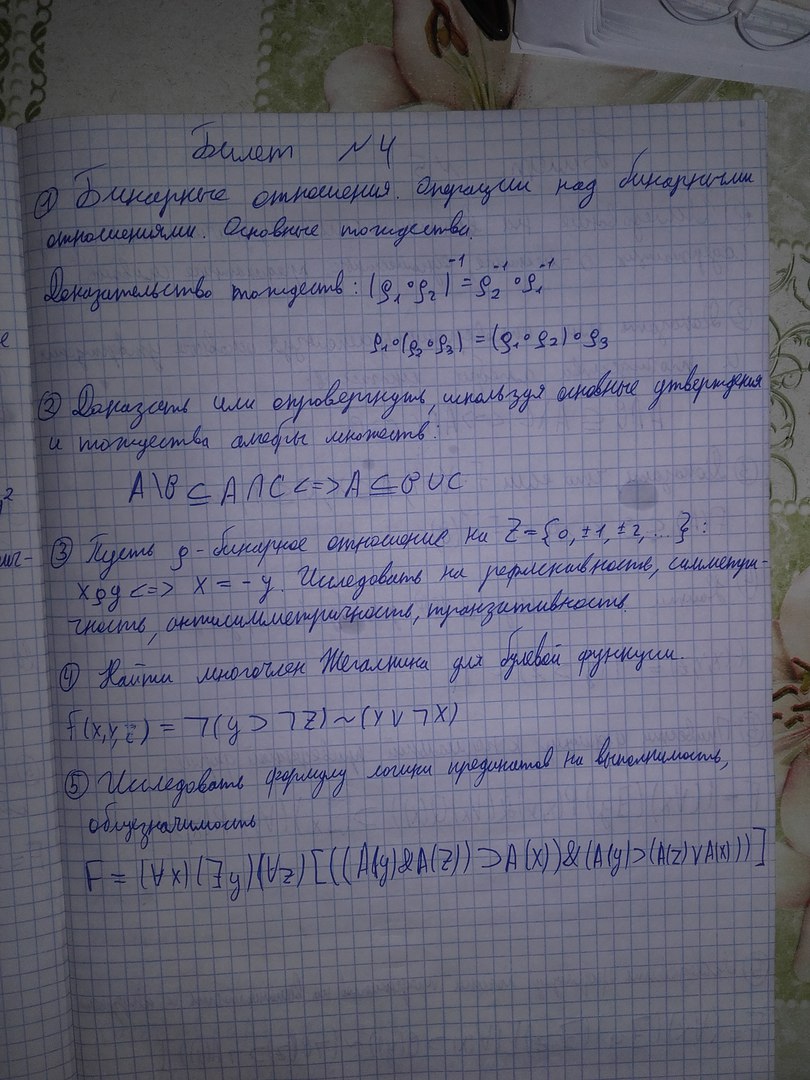 Билет №4
① Бинарные отношения. Операции над бинарными
отношениями. Основные тождества.
Доказательство тождеств: (ρ₁∘ρ₂)⁻¹ = ρ₂⁻¹∘ρ₁⁻¹
ρ₁∘(ρ₂∘ρ₃) = (ρ₁∘ρ₂)∘ρ₃
② Доказать или опровергнуть, используя основные утверждения
и тождества алгебры множеств:
A\B ⊆ A∩C <=> A ⊆ B∪C
③ Пусть ρ - бинарное отношение на Z={0,±1,±2,...}:
xρy <=> x = -y. Исследовать на рефлексивность, симметри-
чность, антисимметричность, транзитивность.
④ Найти многочлен Жегалкина для булевой функции.
f(x,y,z) = ¬(y ⊃ ¬z) ~ (y ∨ ¬x)
⑤ Исследовать формулу логики предикатов на выполнимость,
общезначимость
F = (∀x)(∃y)(∀z)[((A(y)&A(z)) ⊃ A(x))&(A(y) ⊃ (A(z)∨A(x)))]